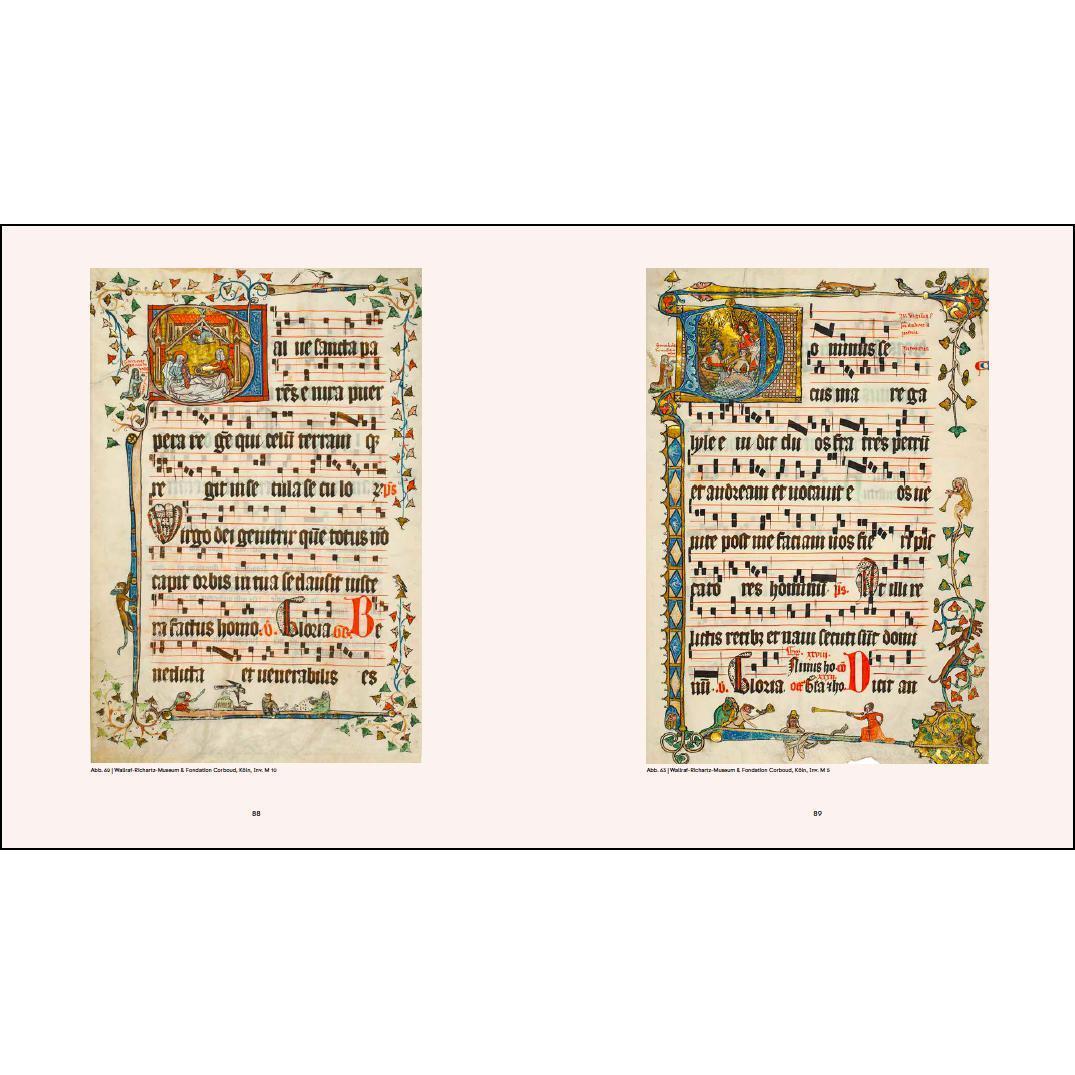 Sal ue sancta pa
rēs e nixa puer
pera re ge qui celū terram q;
re git in se cula se cu lo ꝝ ps
Virgo dei genitrix quē totus nō
capit orbis in tua se clausit uisce
ra factus homo. v. Gloria gr. Be
nedicta et uenerabilis es
Abb. 62 | Wallraf-Richartz-Museum & Fondation Corboud, Köln, Inv. M 10
88
Do minus se
cus ma re ga
lyle e ui dit du os fra tres petrū
et andream et uocauit e os ue
nite post me faciam uos fie ri pis
cato res hominū ps. At illi re
lictis retibz et naui secuti sūt domi
Nimis ho
nū. v. Gloria off Dicit an
Abb. 63 | Wallraf-Richartz-Museum & Fondation Corboud, Köln, Inv. M 5
89